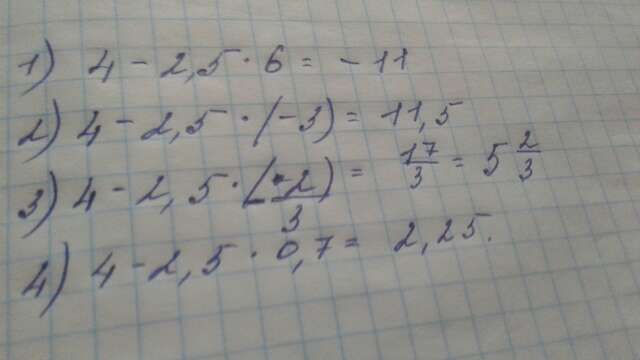 1) 4 - 2,5 · 6 = - 11
2) 4 - 2,5 · (-3) = 11,5
3) 4 - 2,5 · (-2/3) = 17/3 = 5 2/3
4) 4 - 2,5 · 0,7 = 2,25.